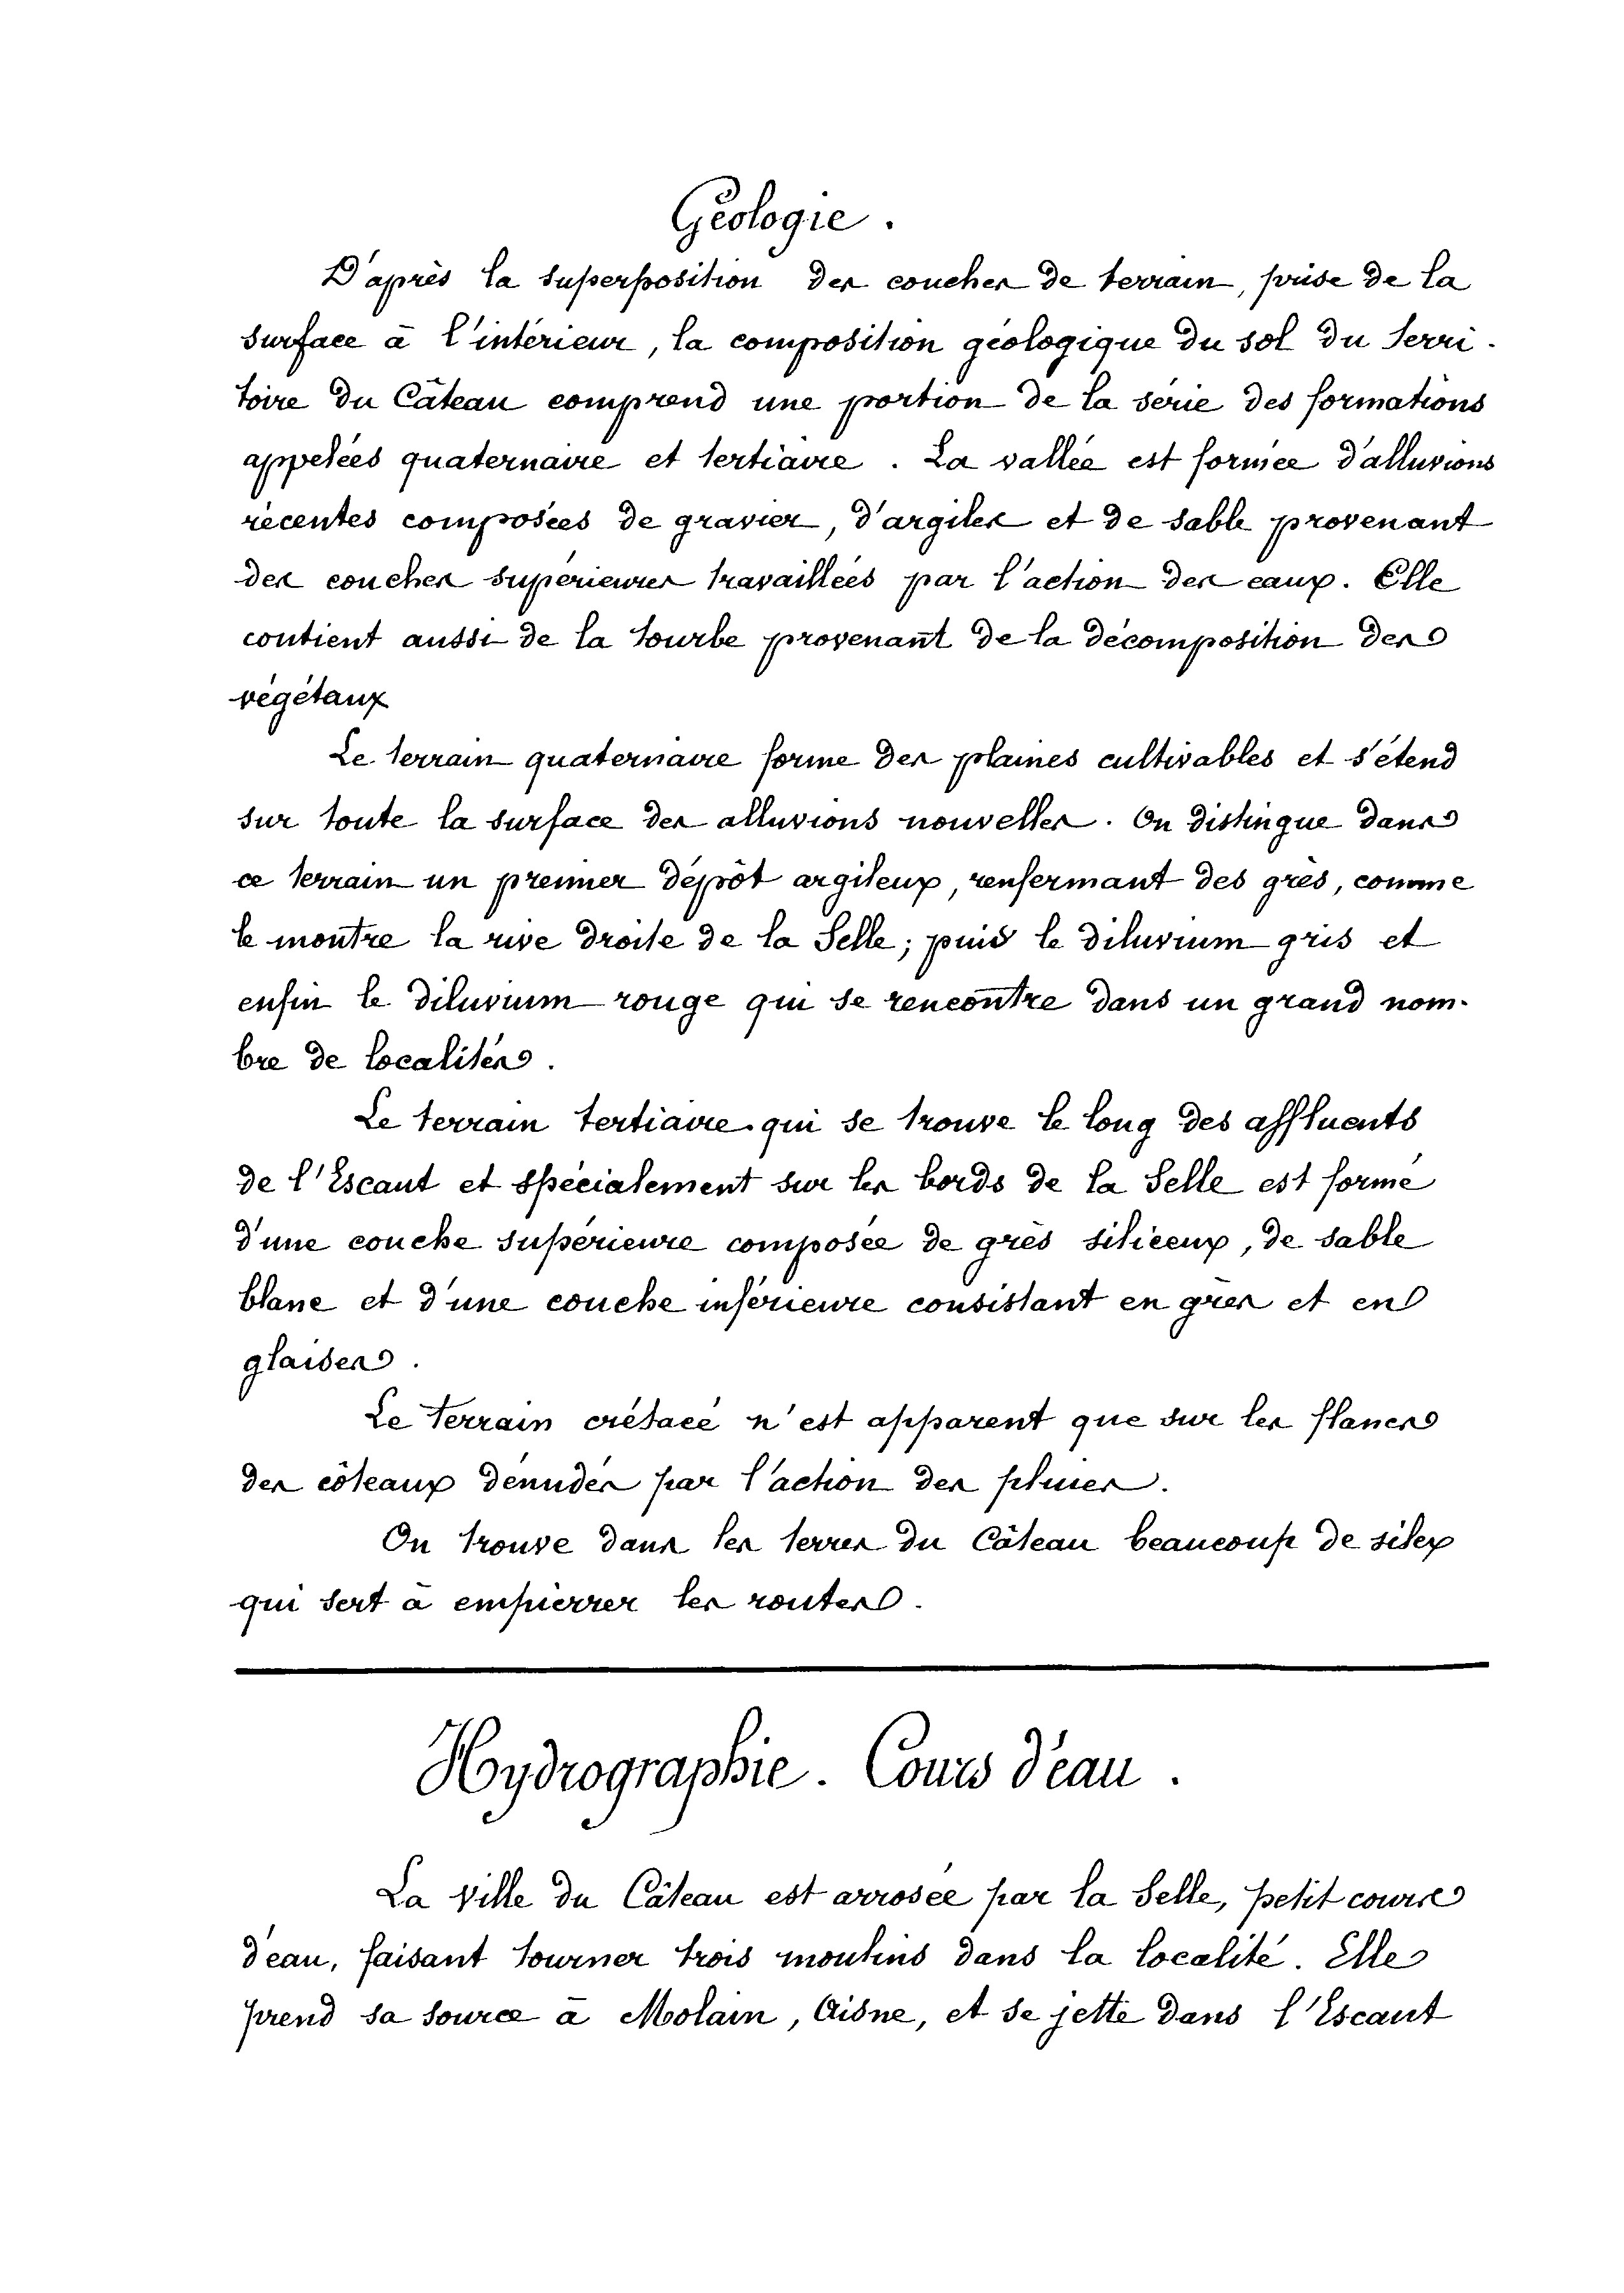 Géologie.
D'après la superposition des couches de terrain, prise de la
surface à l'intérieur, la composition géologique du sol du terri-
toire du Câteau comprend une portion de la série des formations
appelées quaternaire et tertiaire. La vallée est formée d'alluvions
récentes composées de gravier, d'argiles et de sable provenant
des couches supérieures travaillées par l'action des eaux. Elle
contient aussi de la tourbe provenant de la décomposition des
végétaux
Le terrain quaternaire forme des plaines cultivables et s'étend
sur toute la surface des alluvions nouvelles. On distingue dans
ce terrain un premier dépôt argileux, renfermant des grès, comme
le montre la rive droite de la Selle; puis le diluvium gris et
enfin le diluvium rouge qui se rencontre dans un grand nom-
bre de localités.
Le terrain tertiaire qui se trouve le long des affluents
de l'Escaut et spécialement sur les bords de la Selle est formé
d'une couche supérieure composée de grès siliceux, de sable
blanc et d'une couche inférieure consistant en grès et en
glaises.
Le terrain crétacé n'est apparent que sur les flancs
des côteaux dénudés par l'action des pluies.
On trouve dans les terres du Câteau beaucoup de silex
qui sert à empierrer les routes.
Hydrographie. Cours d'eau.
La ville du Câteau est arrosée par la Selle, petit cours
d'eau, faisant tourner trois moulins dans la localité. Elle
prend sa source à Molain, Aisne, et se jette dans l'Escaut